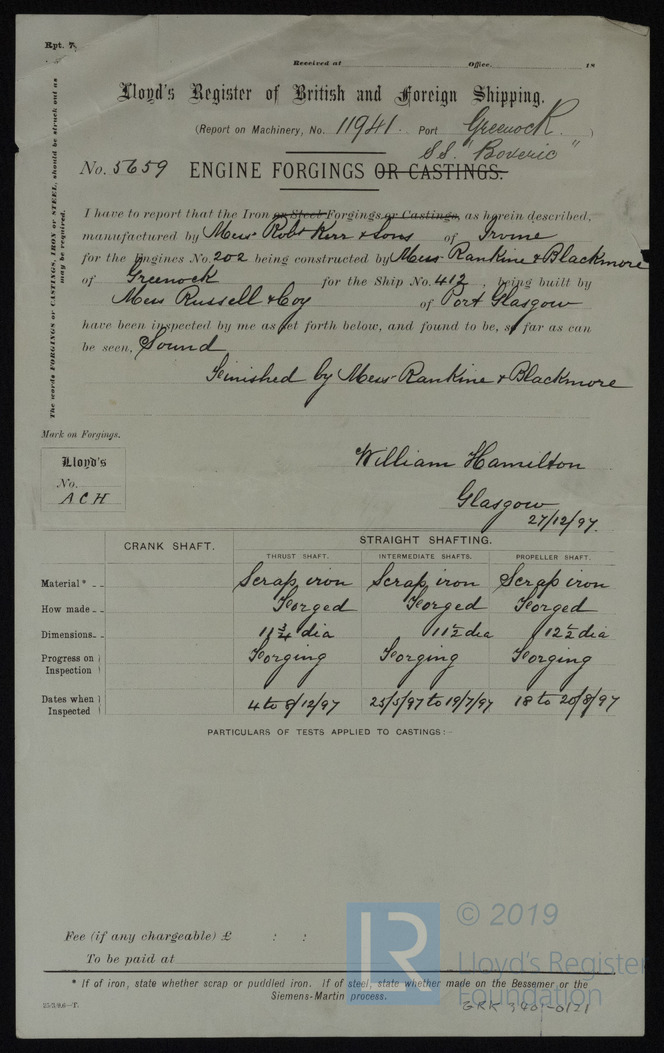 Rpt. 7.
Received at Office. 18
Lloyd's Register of British and Foreign Shipping.
(Report on Machinery, No. 11941 Port Greenock.)
SS. "Boveric"
No. 5659 ENGINE FORGINGS OR CASTINGS.
The words FORGINGS or CASTINGS, IRON or STEEL, should be struck out as may be required.
I have to report that the Iron or Steel Forgings or Castings, as herein described,
manufactured by Mess Robt Kerr & Sons of Irvine
for the Engines No. 202 being constructed by Mess Rankine & Blackmore
of Greenock for the Ship No. 412, being built by
Mess Russell & Coy of Port Glasgow
have been inspected by me as set forth below, and found to be, so far as can
be seen, Sound
Finished by Mess Rankine & Blackmore
Mark on Forgings.
Lloyd's
No.
ACH
William Hamelton
Glasgow
27/12/97.
CRANK SHAFT. STRAIGHT SHAFTING.
THRUST SHAFT. INTERMEDIATE SHAFTS. PROPELLER SHAFT.
Material* Scrap iron Scrap iron Scrap iron
How made Forged Forged Forged
Dimensions 11 3/4 dia 11 1/2 dia 12 1/2 dia
Progress on Inspection Forging Forging Forging
Dates when Inspected 4 to 8/12/97 25/5/97 to 19/7/97 18 to 20/8/97
PARTICULARS OF TESTS APPLIED TO CASTINGS:-
Fee (if any chargeable) £ : :
To be paid at
* If of iron, state whether scrap or puddled iron. If of steel, state whether made on the Bessemer or the
Siemens-Martin process.
GRK 340-0171
LR
© 2019
Lloyd's Register
Foundation